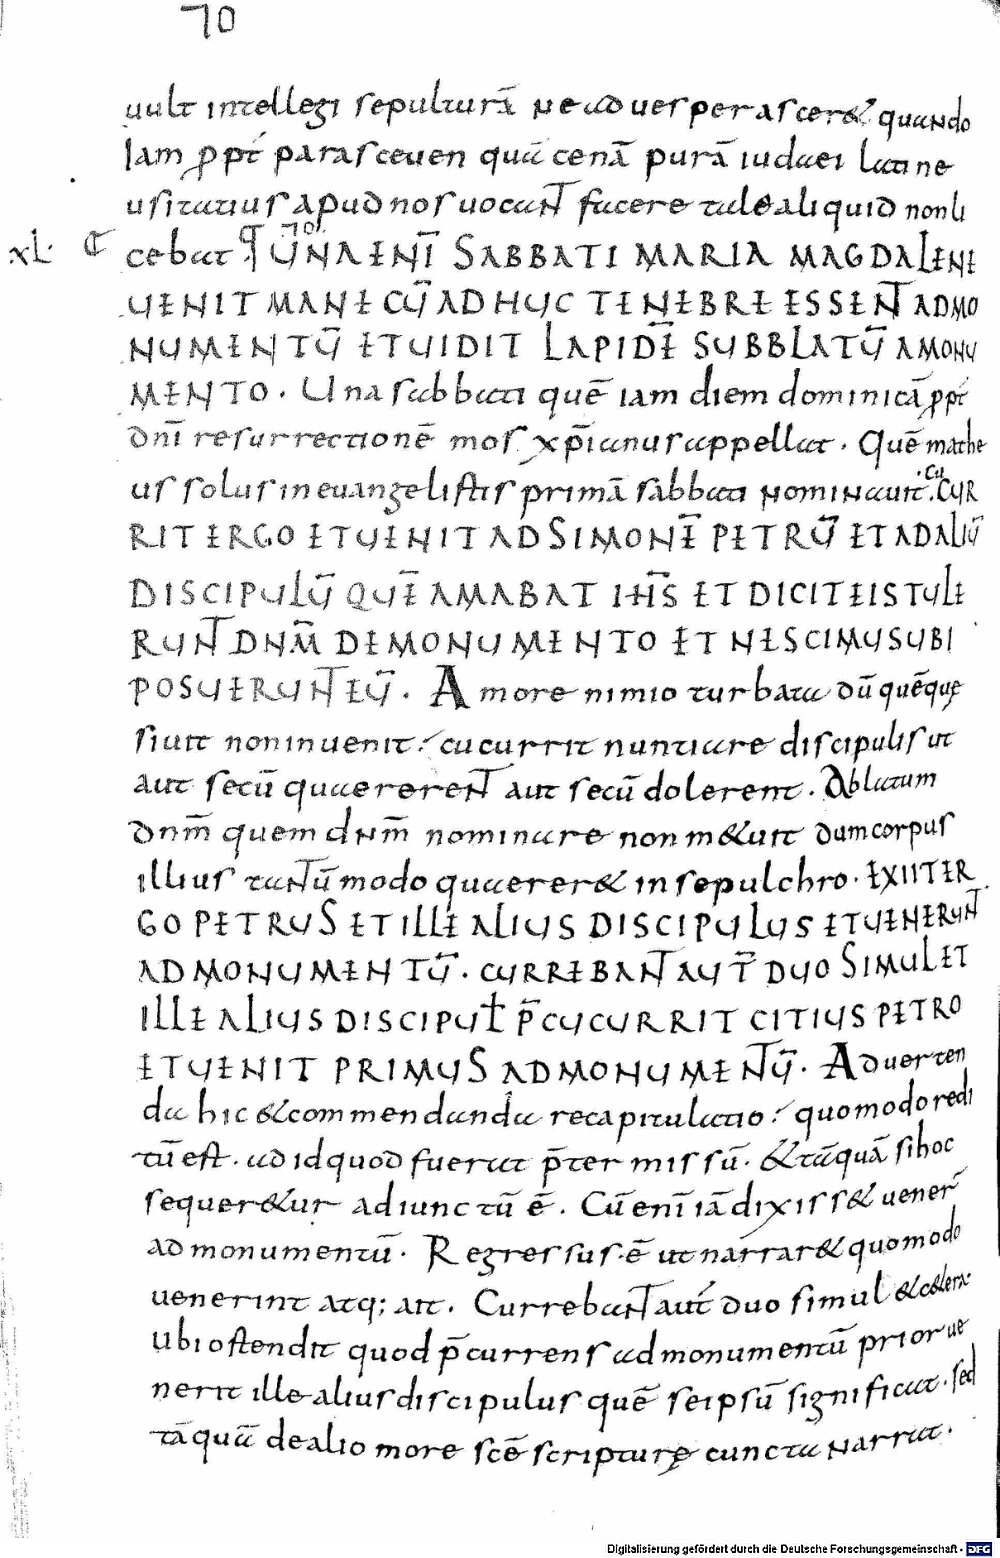 70
uult intellegi sepulturā ne aduesperascer& quando
Iam ꝓpt́ parasceuen quā cenā purā iudaei latine
usitatius apud nos uocant facere tale aliquid non li
xl. cebat UNA ENĪ SABBATI MARIA MAGDALENE
UENIT MANE CŪ ADHUC TENEBRE ESSENT AD MO
NUMENTŪ ET UIDIT LAPIDĒ SUBBLATŪ A MONU
MENTO. Una sabbati quē iam diem dominicā ꝓpt́
dn̄i resurrectionē mos xp̄ianus appellat. Quē mathe
us solus in euangelistis primā sabbati nominauit. CUR
RIT ERGO ET UENIT AD SIMONĒ PETRŪ ET AD ALIŪ
DISCIPULŪ QUĒ AMABAT IH̄S ET DICIT EIS TULE
RUNT DNM̄ DE MONUMENTO ET NESCIMUS UBI
POSUERUNT EŪ. Amore nimio turbata dū quēque
siuit non inuenit; cucurrit nuntiare discipulis ut
aut secū quaererent aut secū dolerent. Ablatum
dnm̄ quem dnm̄ nominare non m&uit dum corpus
illius tantūmodo quaerer& in sepulchro. EXIIT ER
GO PETRUS ET ILLE ALIUS DISCIPULUS ET UENERUNT
AD MONUMENTŪ. CURREBANT AUT̄ DUO SIMUL ET
ILLE ALIUS DISCIPUŁ P̄CUCURRIT CITIUS PETRO
ET UENIT PRIMUS AD MONUMENTŪ. Aduerten
da hic & commendanda recapitulatio; quomodo redi
tū est. ad id quod fuerat p̄termissū. & tāquā si hoc
sequer&ur adiunctū ē. Cū enī iā dixiss& uener̄
ad monumentū. Regressus ē ut narrar& quomodo
uenerint atq; ait. Currebant aut́ duo simul & c&era.
Ubi ostendit quod p̄currens ad monumentū prior ue
nerit ille alius discipulus quē seipsū significat. sed
tāquā de alio more scē scripturę cuncta narrat.
Digitalisierung gefördert durch die Deutsche Forschungsgemeinschaft - DFG